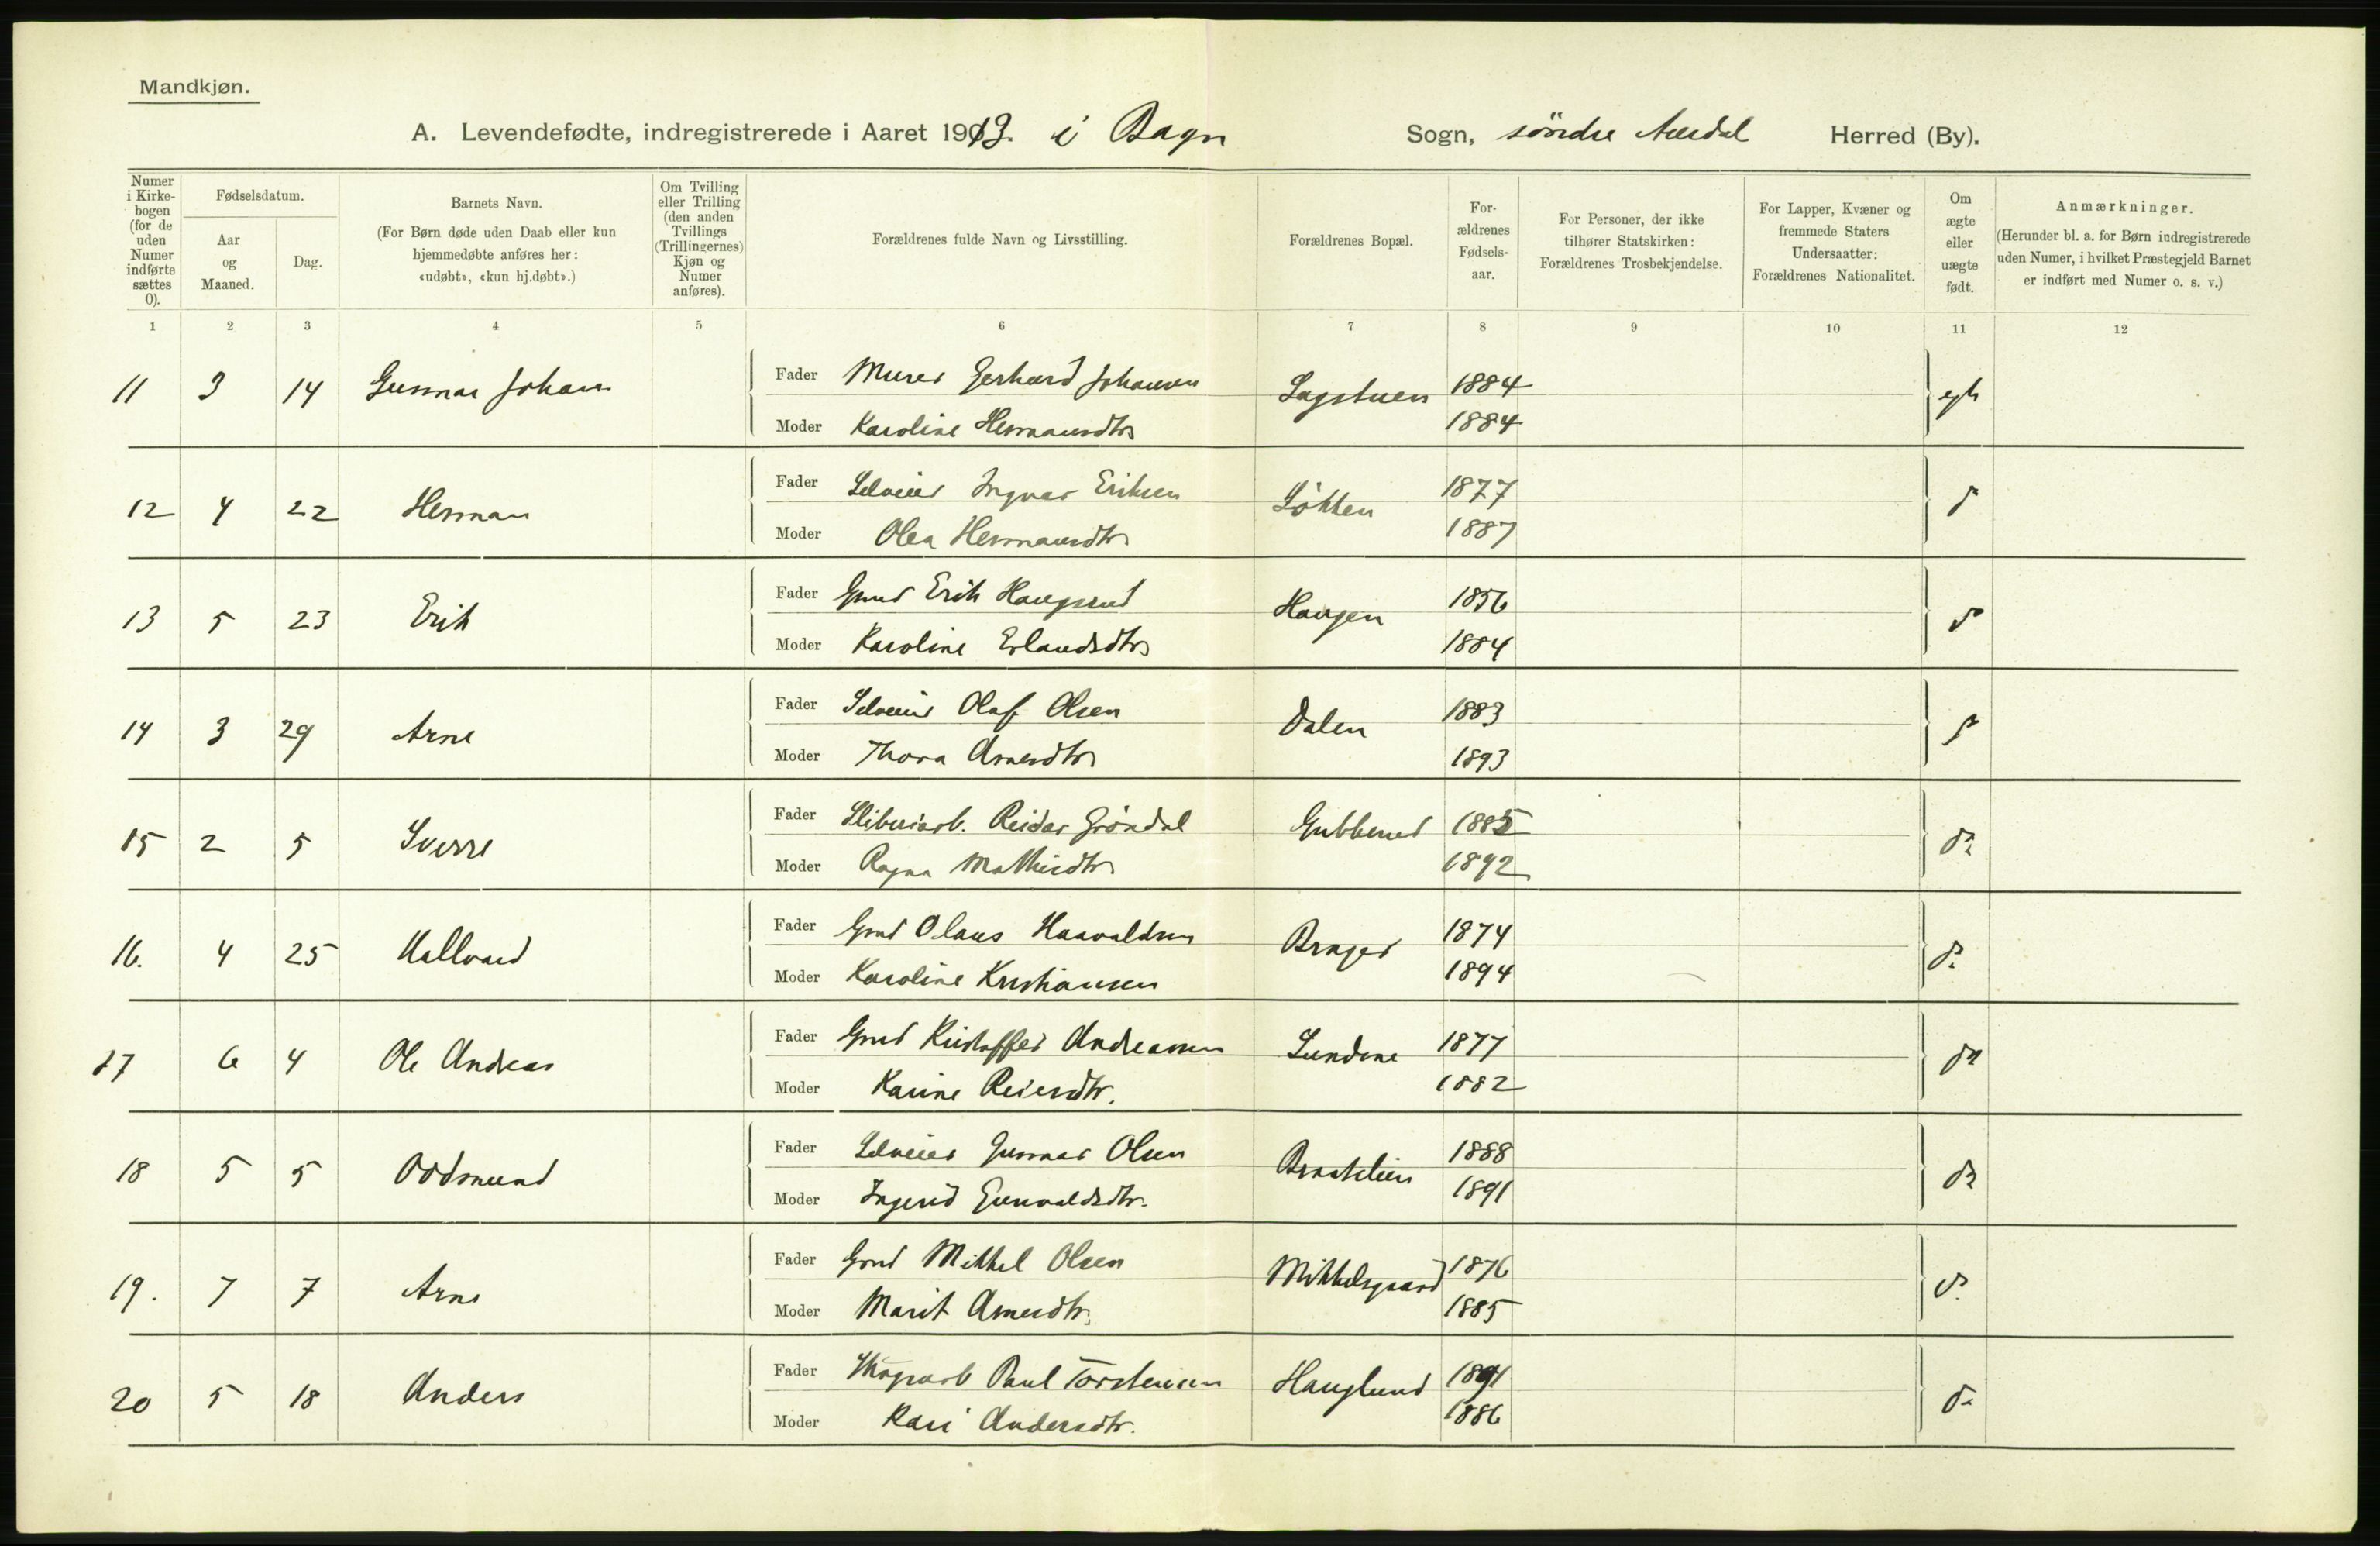 Mandkjøn.
A. Levendefødte, indregistrerede i Aaret 1913. i Bagn Sogn, söndre Aurdal Herred (By).
Numer i Kirkebogen (for de uden Numer indførte sættes 0).
Fødselsdatum.
Aar og Maaned.
Dag.
Barnets Navn.
(For Børn døde uden Daab eller kun hjemmedøbte anføres her: «udøbt», «kun hj.døbt».)
Om Tvilling eller Trilling (den anden Tvillings (Trillingernes) Kjøn og Numer anføres).
Forældrenes fulde Navn og Livsstilling.
Forældrenes Bopæl.
Forældrenes Fødselsaar.
For Personer, der ikke tilhører Statskirken: Forældrenes Trosbekjendelse.
For Lapper, Kvæner og fremmede Staters Undersaatter: Forældrenes Nationalitet.
Om ægte eller uægte født.
Anmærkninger.
(Herunder bl. a. for Børn indregistrerede uden Numer, i hvilket Præstegjeld Barnet er indført med Numer o. s. v.)
1 2 3 4 5 6 7 8 9 10 11 12
11 3 14 Gunnar Johan Fader Murer Gerhard Johansen Sagstuen 1884 egte
Moder Karoline Hermansdtr 1884
12 4 22 Herman Fader Selveier Ingvar Eriksen Lökken 1877 d
Moder Olea Hermansdtr 1887
13 5 23 Erik Fader Grmd Erik Haugsrud Haugen 1856 do
Moder Karoline Erlandsdtr 1884
14 3 29 Arne Fader Selveier Olaf Olsen Dalen 1883 do
Moder Thora Arnesdtr 1893
15 2 5 Sverre Fader Sliberiarb. Reidar Gröndal 1885 do
Moder Ragna Mathisdtr 1892
16. 4 25 Hallvard Fader Grmd Olaus Haavaldsen Brager 1874 do
Moder Karoline Kristiansen 1894
17 6 4 Ole Andreas Fader Grmd Kristoffer Andreasen Lundene 1877 do
Moder Karine Reiersdtr. 1882
18 5 5 Oddmund Fader Selveier Gunnar Olsen Bratelien 1888 do
Moder Ingerid Gunvaldsdtr. 1891
19. 7 7 Arne Fader Grmd Mikkel Olsen Mikkelsgaard 1876 do
Moder Marit Arnesdtr. 1885
20 5 18 Anders Fader Skogsarb Paul Torstensen Hauglund 1891 do
Moder Kari Andersdtr. 1886